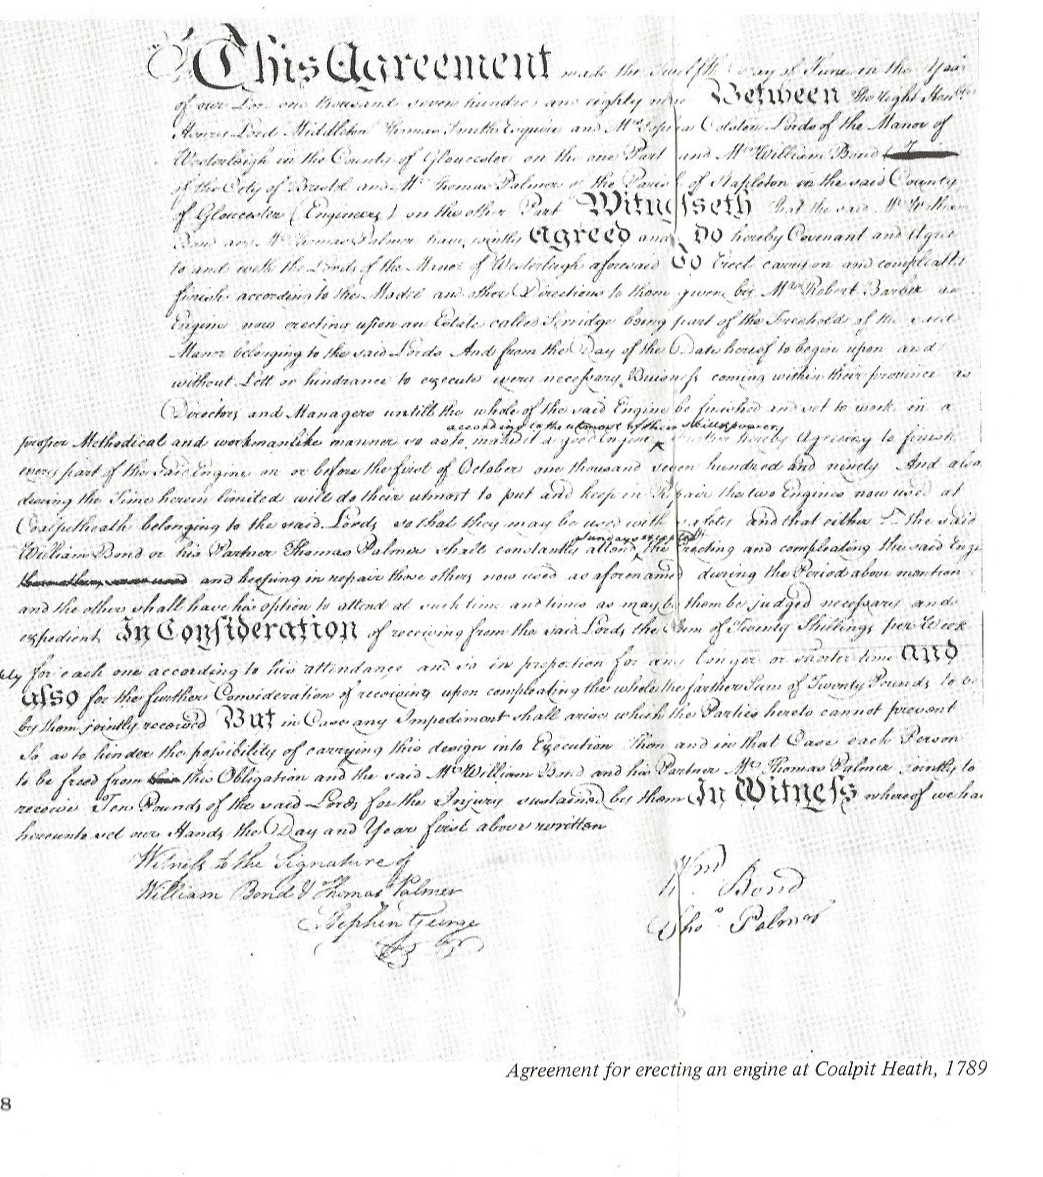 This Agreement made the Twelfth Day of June in the Year
of our Lord one thousand seven hundred and eighty nine Between The Right Honble
Henry Lord Middleton Thomas Smith Esquire and Mrs Sophia Colston Lords of the Manor of
Westerleigh in the County of Gloucester on the one Part and Mr William Bond
of the City of Bristol and Mr Thomas Palmer of the Parish of Stapleton in the said County
of Gloucester (Engineers) on the other Part Witnesseth that the said Mr William
Bond and Mr Thomas Palmer have jointly Agreed and Do hereby Covenant and Agree
to and with the Lords of the Manor of Westerleigh aforesaid To Erect carry on and compleatly
finish according to the Model and other Directions to them given by Mr Robert Barber an
Engine now erecting upon an Estate called Serridge being part of the Freeholds of the said
Manor belonging to the said Lords And from the Day of the Date hereof to begin upon and
without Lett or hindrance to execute every necessary Buisness coming within their province as
Directors and Managers untill the whole of the said Engine be finished and set to work in a
according to the utmost of their skill & power
proper Methodical and workmanlike manner so as to make it a good Engine further hereby Agreeing to finish
every part of the said Engine on or before the first of October one thousand seven hundred and ninety And also
during the Time herein limited will do their utmost to put and keep in Repair the two Engines now used at
Coalpitheath belonging to the said Lords so that they may be used with safety and that either the said
Sundays excepted
William Bond or his Partner Thomas Palmer shall constantly attend the Erecting and compleating the said Engine
and keeping in repair those others now used as aforenamed during the Period above mention
and the others shall have his option to attend at such time and times as may by them be judged necessary and
expedient In Consideration of receiving from the said Lords the Sum of Twenty Shillings per Week
for each one according to his attendance and so in proportion for any longer or shorter time And
Also for the further Consideration of receiving upon compleating the whole the farther Sum of Twenty Pounds to be
by them jointly received But in Case any Impediment shall arise which the Parties hereto cannot prevent
So as to hinder the possibility of carrying this design into Execution Then and in that Case each Person
to be freed from this Obligation and the said Mr William Bond and his Partner Mr Thomas Palmer jointly to
receive Ten Pounds of the said Lords for the Injury sustained by them In Witness whereof we ha
hereunto set our Hands the Day and Year first above written
Witness to the Signature of
William Bond & Thomas Palmer
Stephen George
Wm Bond
Thos Palmer
Agreement for erecting an engine at Coalpit Heath, 1789
8